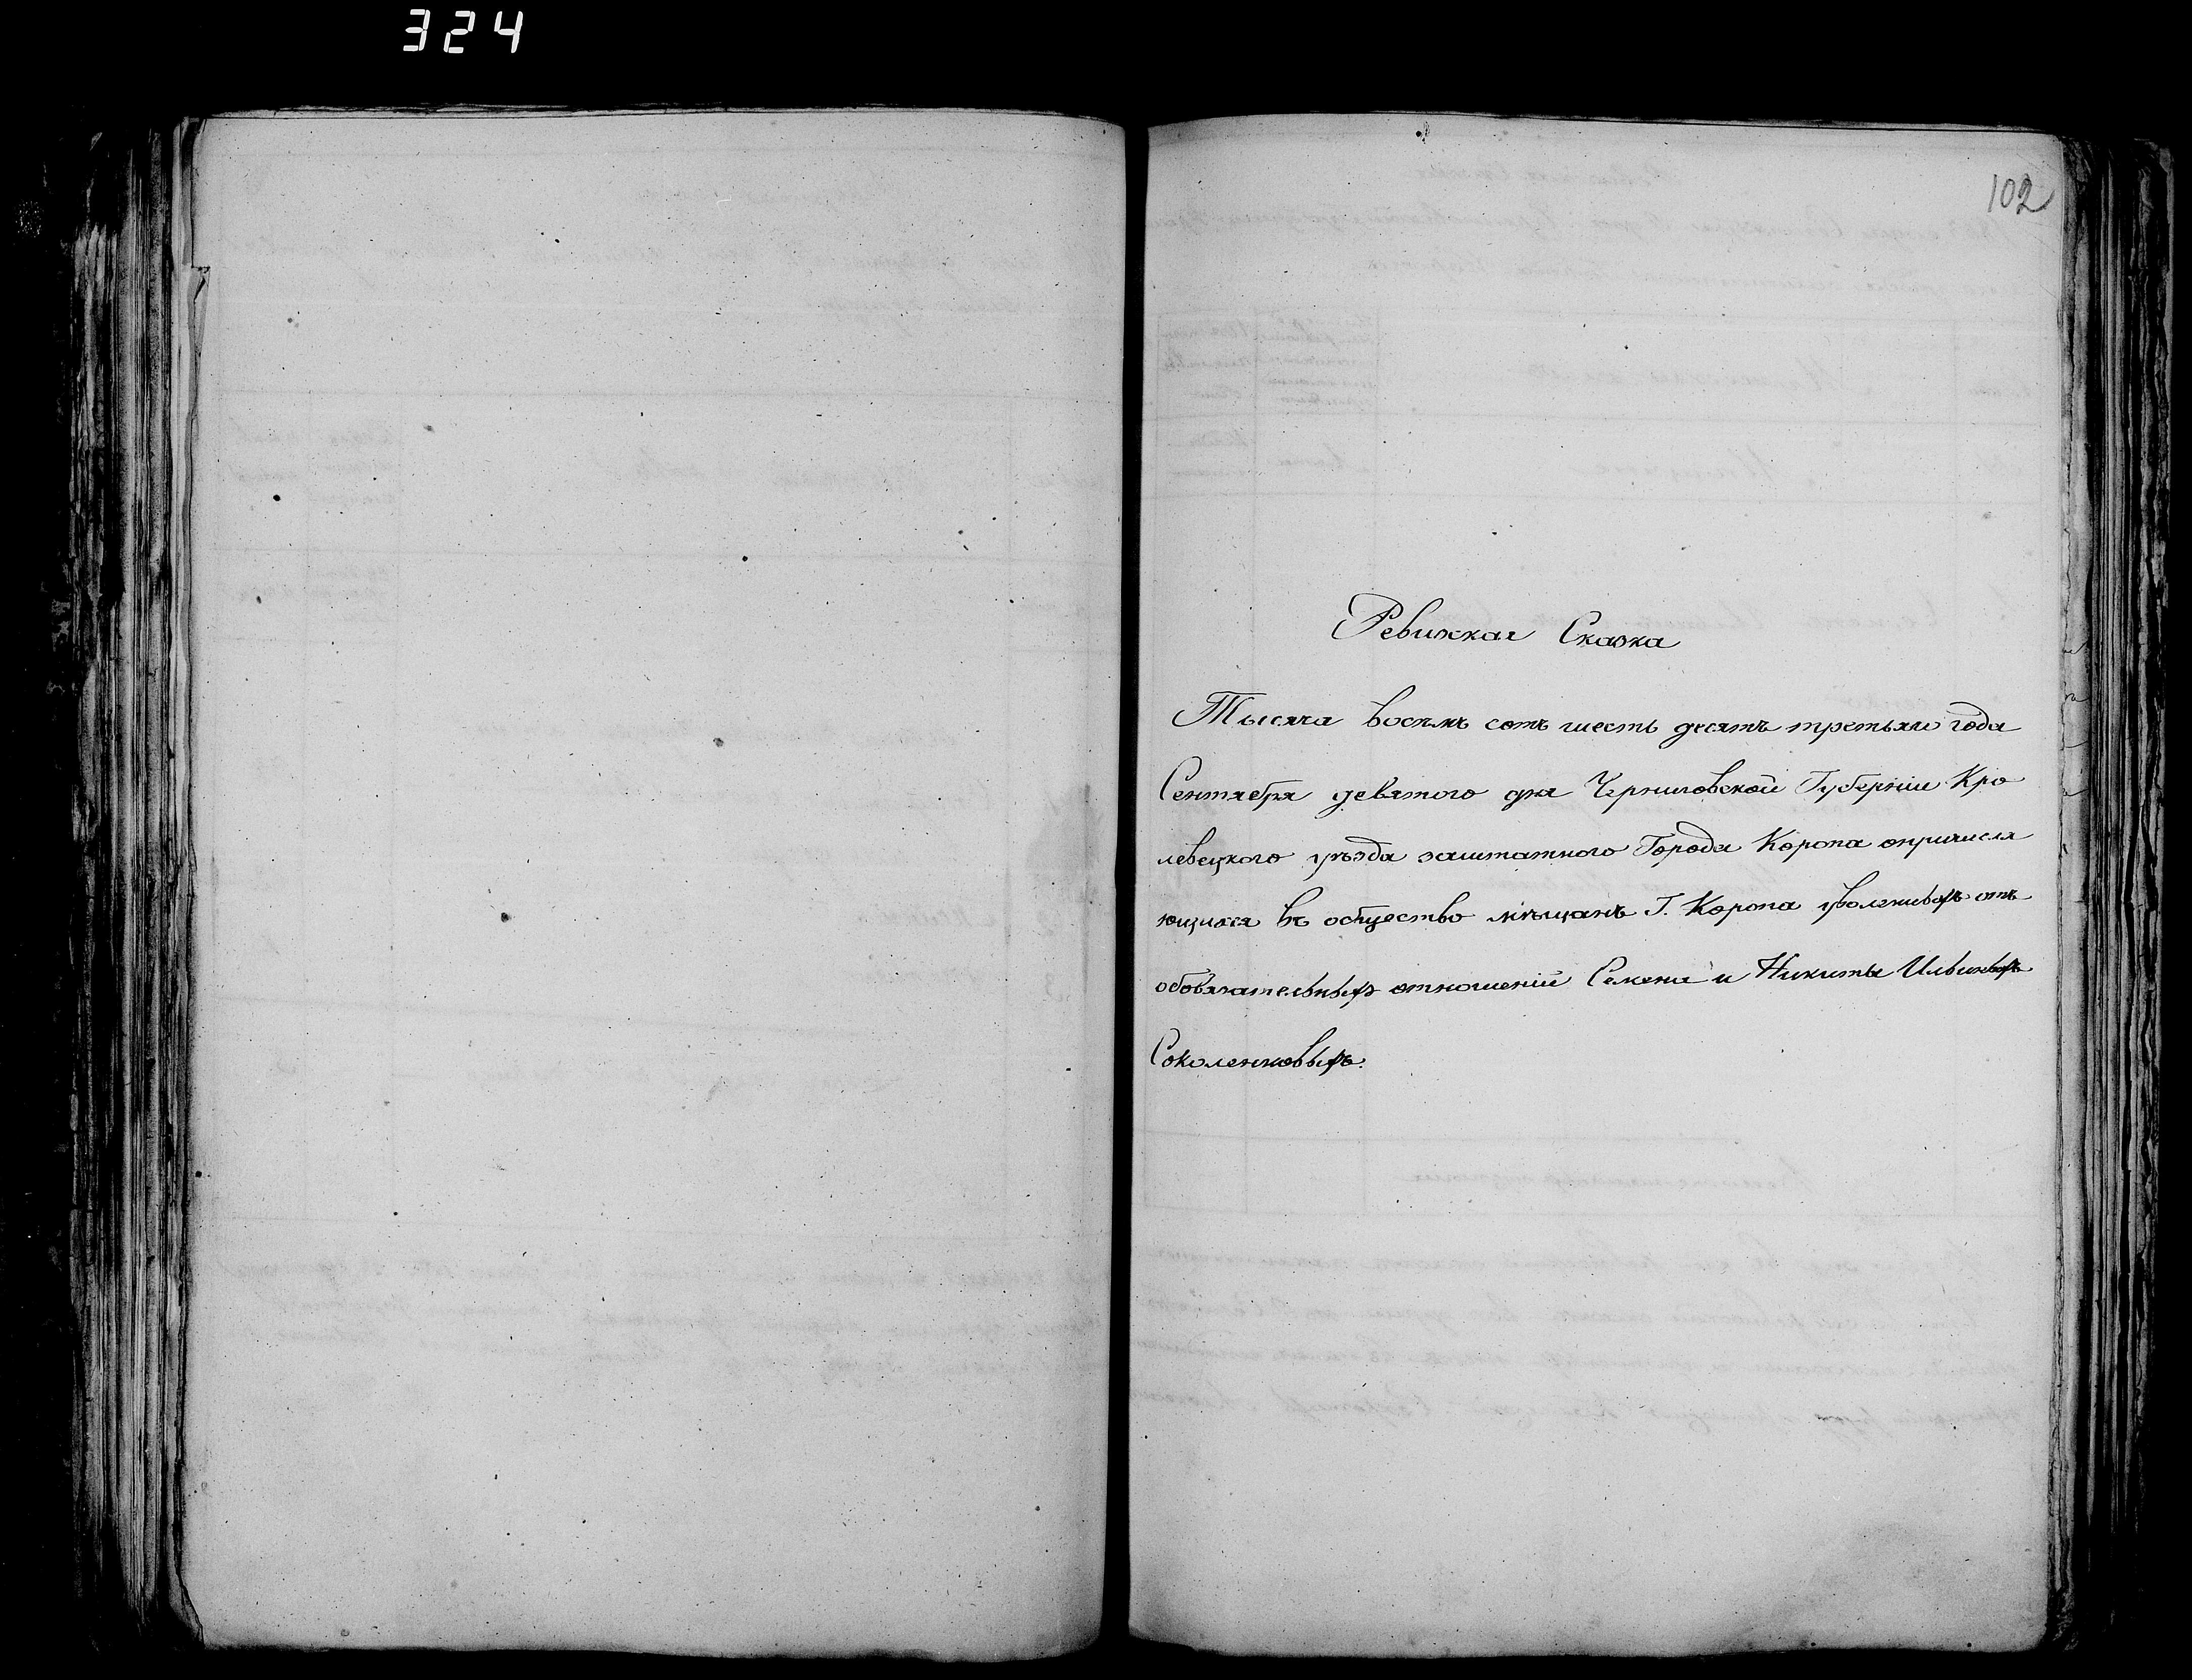 324
102
Ревизская Сказка
Тысяча восемь сотъ шесть десятъ третьяго года
Сентября девятого дня Черниговской Губерніи Кро
левецкого уѣзда заштатного Города Коропа опричисля
ющихся въ общество мѣщанъ Г. Коропа уволенныхъ отъ
обовязательныхъ отношеній Семена и Никиты Ильиныхъ
Соколенковыхъ.